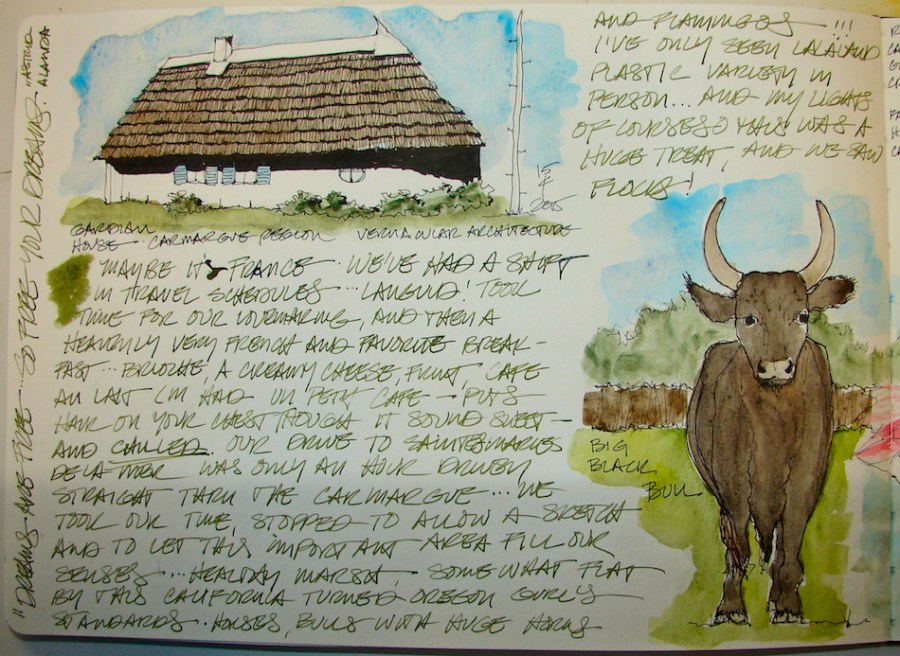 "DREAMS ARE FREE --- SO FREE YOUR DREAMS." ~ASTRID ALANDA
GARDIAN
HOUSE - CARMARGUE REGION VERNACULAR ARCHITECTURE
2015
MAYBE IT'S FRANCE - WE'VE HAD A SHIFT
IN TRAVEL SCHEDULES --- LANGUID! TOOK
TIME FOR OUR LOVEMAKING, AND THEN A
HEAVENLY VERY FRENCH AND FAVORITE BREAK-
FAST --- BRIOCHE, A CREAMY CHEESE, FRUIT, CAFE
AU LAIT (I'M HAD UN PETIT CAFE - PUTS
HAIR ON YOUR CHEST THOUGH IT SOUND SWEET -
AND CHILLED. OUR DRIVE TO SAINTES MARIES
DE LA MER WAS ONLY AN HOUR DRIVEN
STRAIGHT THRU THE CARMARGUE --- WE
TOOK OUR TIME, STOPPED TO ALLOW A SKETCH
AND TO LET THIS IMPORTANT AREA FILL OUR
SENSES --- HEALTHY MARSH, SOMEWHAT FLAT
BY THIS CALIFORNIA TURNED OREGON GURL'S
STANDARDS. HORSES, BULLS WITH HUGE HORNS
AND FLAMINGOS !!!
I'VE ONLY SEEN LALALAND
PLASTIC VARIETY IN
PERSON... AND MY LIGHTS
OF COURSE SO THIS WAS A
HUGE TREAT, AND WE SAW
FLOCKS!
BIG
BLACK
BULL